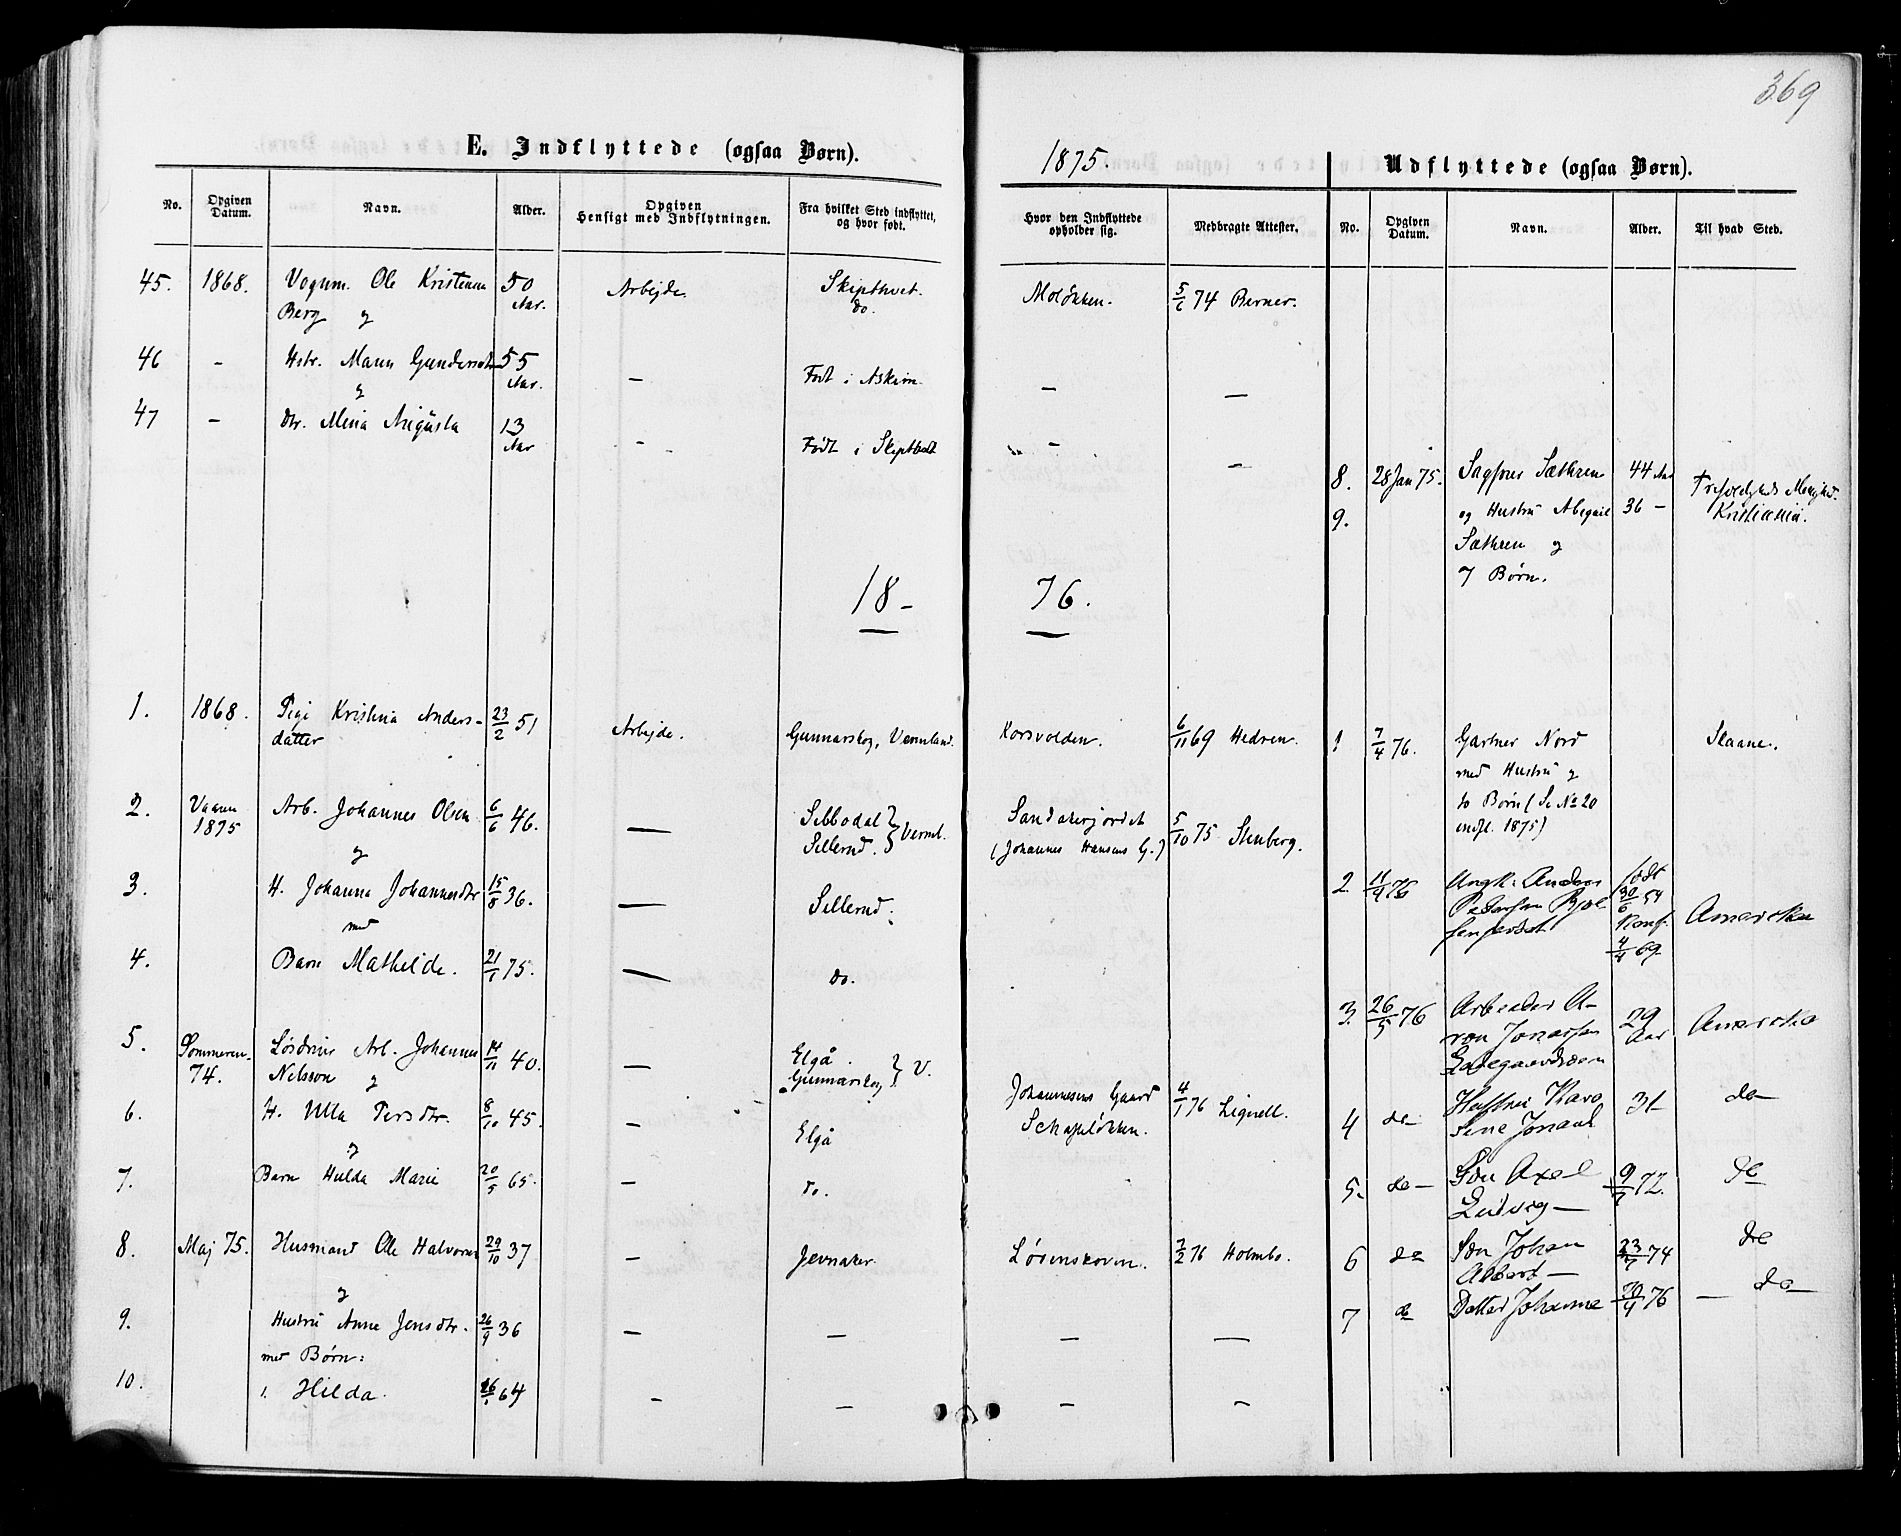 369
E. Indflyttede (ogsaa Børn).
1875.
Udflyttede (ogsaa Børn).
No. Opgiven Datum. Navn. Alder. Opgiven Hensigt med Indflytningen. Fra hvilket Sted indflyttet, og hvor født. Hvor den Indflyttede opholder sig. Medbragte Attester. No. Opgiven Datum. Navn. Alder. Til hvad Sted.
45. 1868. Vognm. Ole Kristensen 50 Aar. Arbejde. Skipthvet. Moløkken. 5/6 74 Berner.
Berg og do.
46 – Hstr. Maren Gundersdtr 55 Aar. – Født i Askim. – –
og
47 – dtr. Mina Augusta 13 Aar – Født i Skipthvet – –
8. 28 Jan 75. Sagfører Sæthren 44 Aar Trefoldigheds Menighed.
9. og Hustru Abegael 36 – Kristiania.
Sæthren og
7 Børn.
18– 76.
1. 1868. Pige Kristina Anders- 23/2 51 Arbejde. Gunnarskog, Vermland. Korsvolden. 6/11 69 Hedren.
datter
1 7/4 76. Gartner Nord Slaane.
med Hustru og
10 Børn (Se No 20
indfl. 1875)
2. Vaaren 1875 Arb. Johannes Olsen 6/6 46. — Silbodal } Verml. Sandakerjordet 5/10 75 Stenberg.
og Sillerud. (Johannes Hansens G.)
3. H. Johanna Johannesdtr 15/8 36. — Sillerud.
med
2 11/4 76 Ungk. Anders født 30/6 54 Amerika
Pedersen Konf. 4/4 69
4. Barn Mathilde. 21/1 75. — do.
3. 26/5 76 Arbeider A- 29 Aar Amerika
ron Jonassen
Ladegaardsøen
5. Sommeren 74. Løsdriver Arb. Johannes 14/11 40. — Elgå. } V.
Nilsson og Gunnarskog
6. H. Ulla Persdtr. 8/10 45. – Elgå Johannesens Gaard 4/1 76 Lignell.
og Schafteløkken.
4 do Hustru Karo 31 do
line Jonash
7. Barn Hulda Marie 20/5 65. – do.
5. do Søn Axel 9/7 72. do
Ludvig —
8. Maj 75. Husmand Ole Halvorsen 29/10 37 – Jevnaker Løvenskoven. 7/2 76 Holmbo.
og
6 do Søn Johan 23/7 74 do
Albert —
9. Hustru Anne Jensdtr. 26/9 36 – – – —
med Børn:
7 do Datter Johanne 30/4 76 — do
10. 1. Hilda. 26/1 64 – – – –